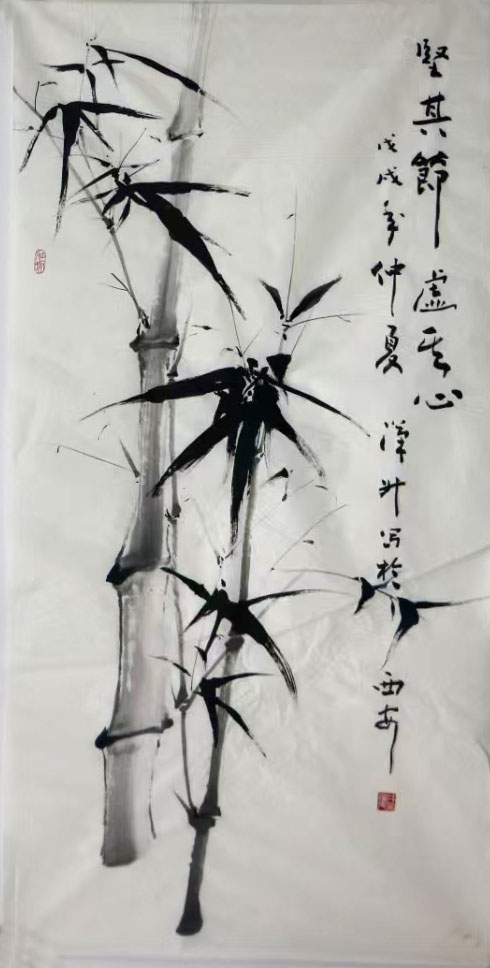 堅其節 虛其心
戊戌年仲夏 漢升写於西安